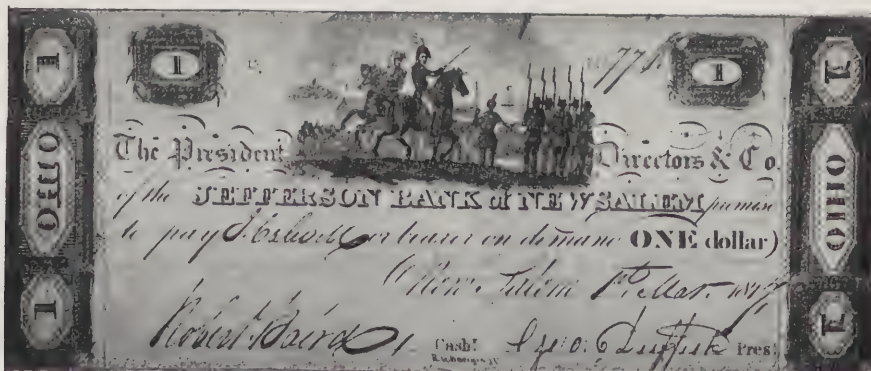 1 1 1 1
OHIO OHIO
The President Directors & Co.
of the JEFFERSON BANK of NEW SALEM promise
to pay or bearer on demand ONE dollar
New Salem 1 Mar.
Robert Baird Cashr. Jno. Pres.
1 1